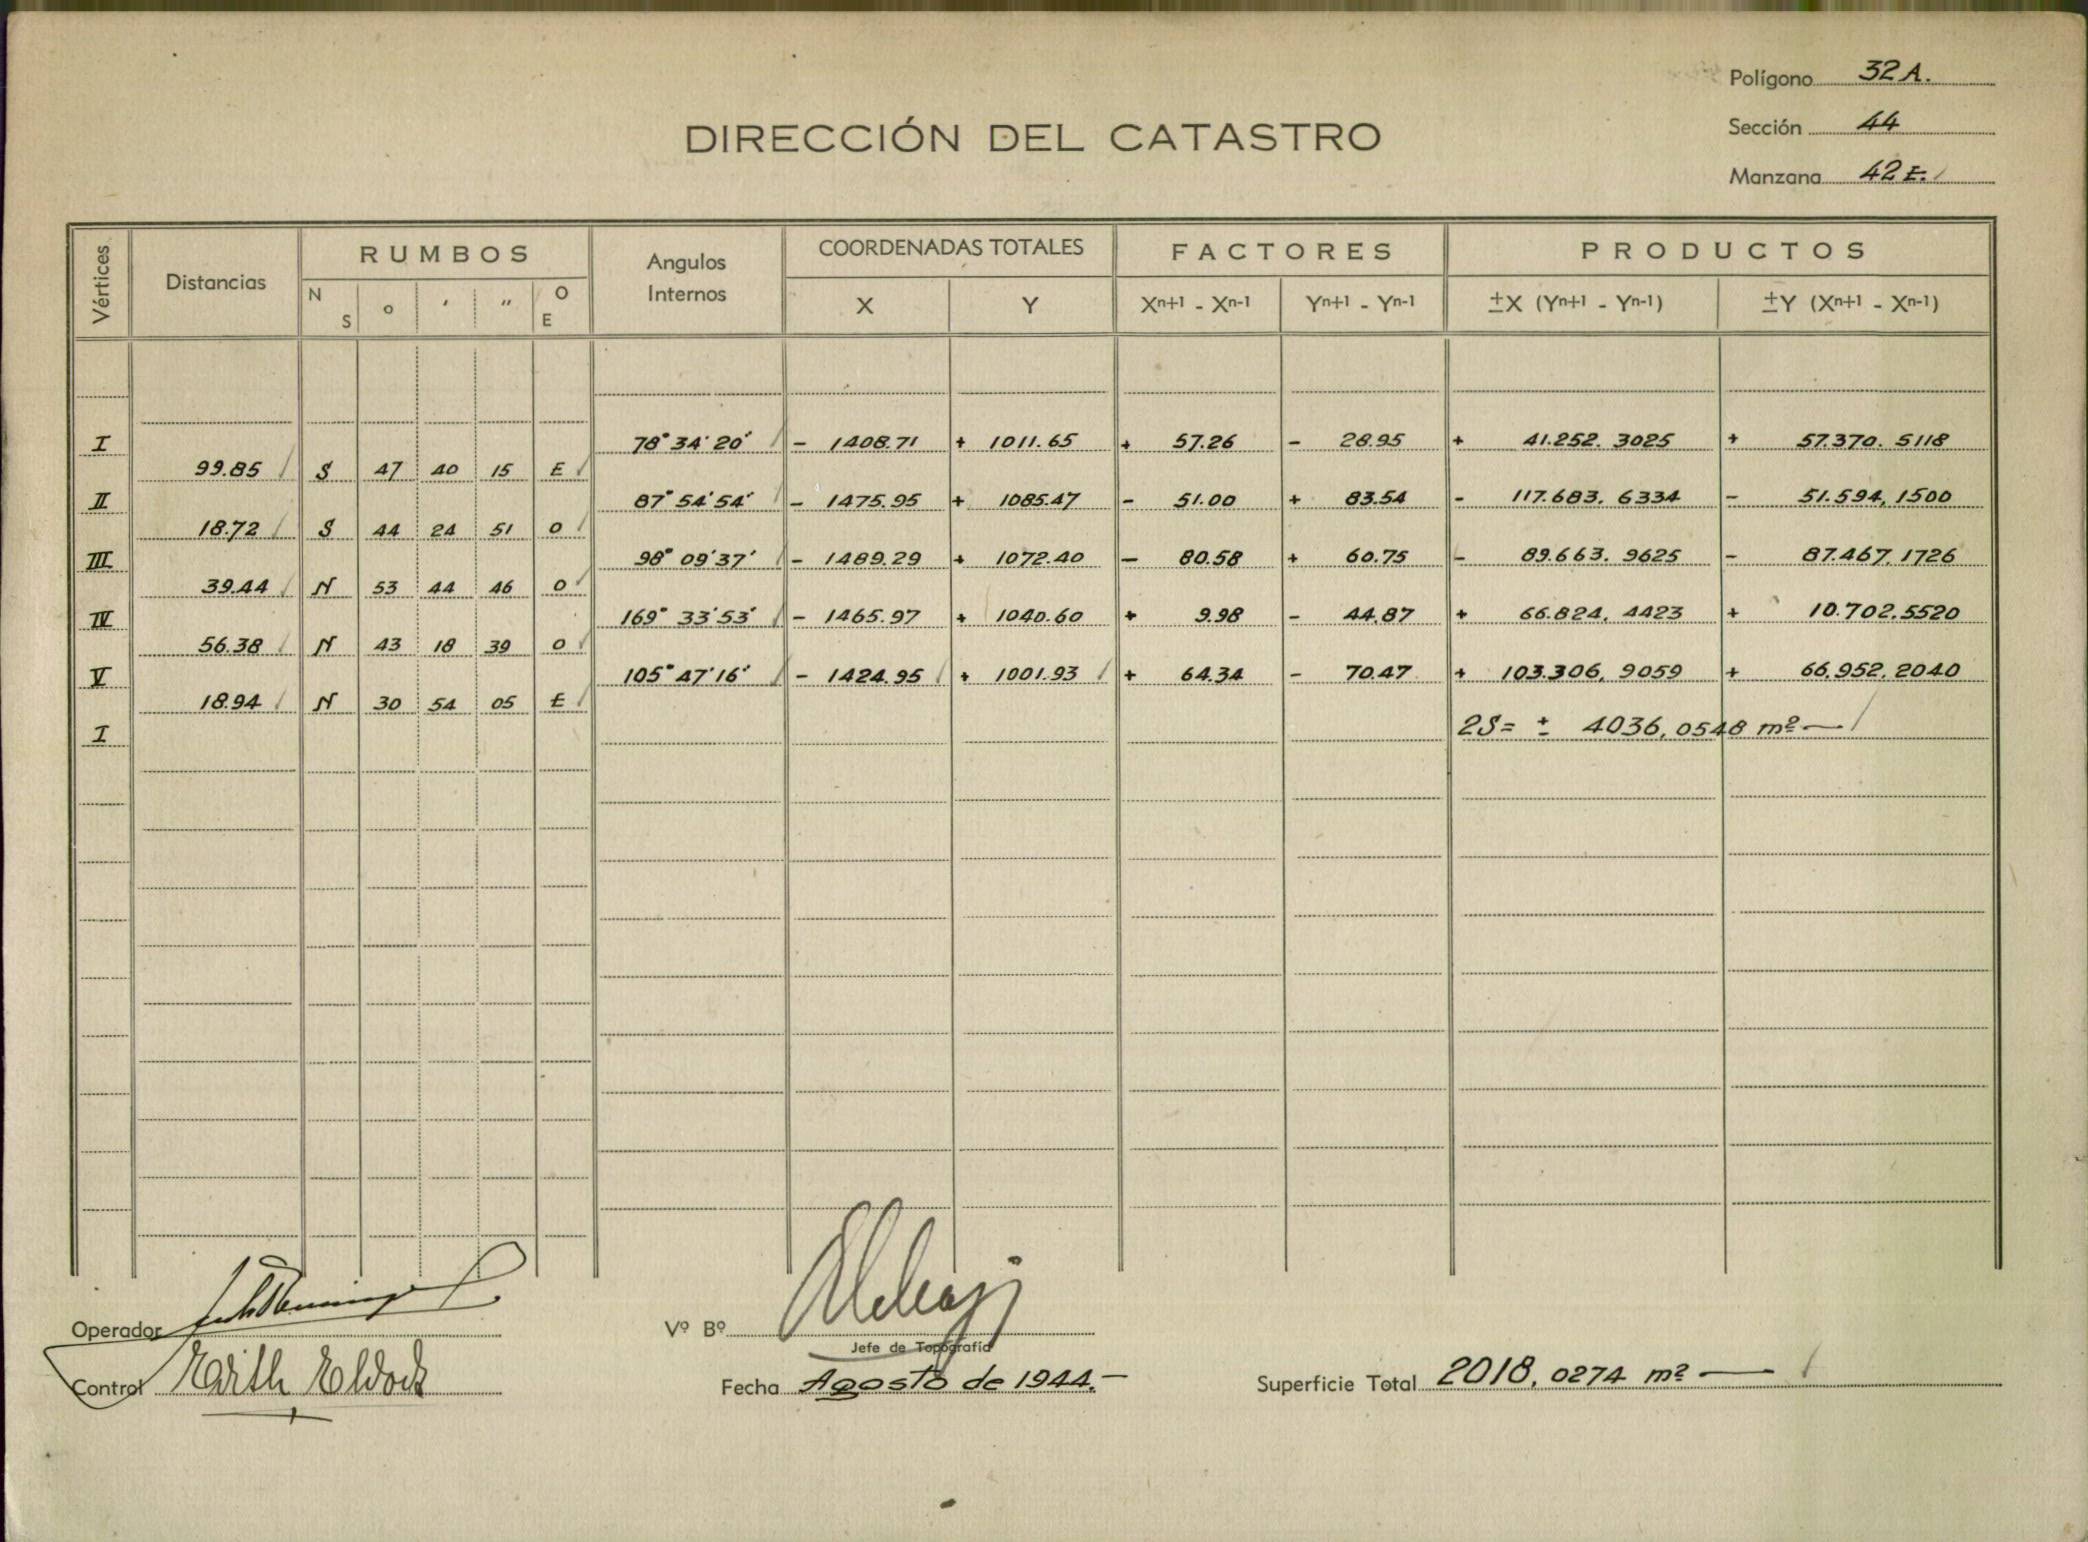 Polígono 32 A.
Sección 44
Manzana 42 E.
DIRECCIÓN DEL CATASTRO
Vértices Distancias RUMBOS Angulos Internos COORDENADAS TOTALES FACTORES PRODUCTOS
N S o ' " O E X Y Xn+1 - Xn-1 Yn+1 - Yn-1 ±X (Yn+1 - Yn-1) ±Y (Xn+1 - Xn-1)
I 78° 34' 20' - 1408.71 + 1011.65 + 57.26 - 28.95 + 41.252. 3025 + 57.370. 5118
99.85 S 47 40 15 E
II 87° 54' 54' - 1475.95 + 1085.47 - 51.00 + 83.54 - 117.683, 6334 - 51.594, 1500
18.72 S 44 24 51 O
III 98° 09' 37' - 1489.29 + 1072.40 - 80.58 + 60.75 - 89.663. 9625 - 87.467, 1726
39.44 N 53 44 46 O
IV 169° 33' 53' - 1465.97 + 1040.60 + 9.98 - 44.87 + 66.824, 4423 + 10.702, 5520
56.38 N 43 18 39 O
V 105° 47' 16' - 1424.95 + 1001.93 + 64.34 - 70.47 + 103.306, 9059 + 66.952, 2040
18.94 N 30 54 05 E
I 2S= ± 4036,0548 m²—
Operador
Vº Bº
Jefe de Topografía
Control
Fecha Agosto de 1944.-
Superficie Total 2018,0274 m² —